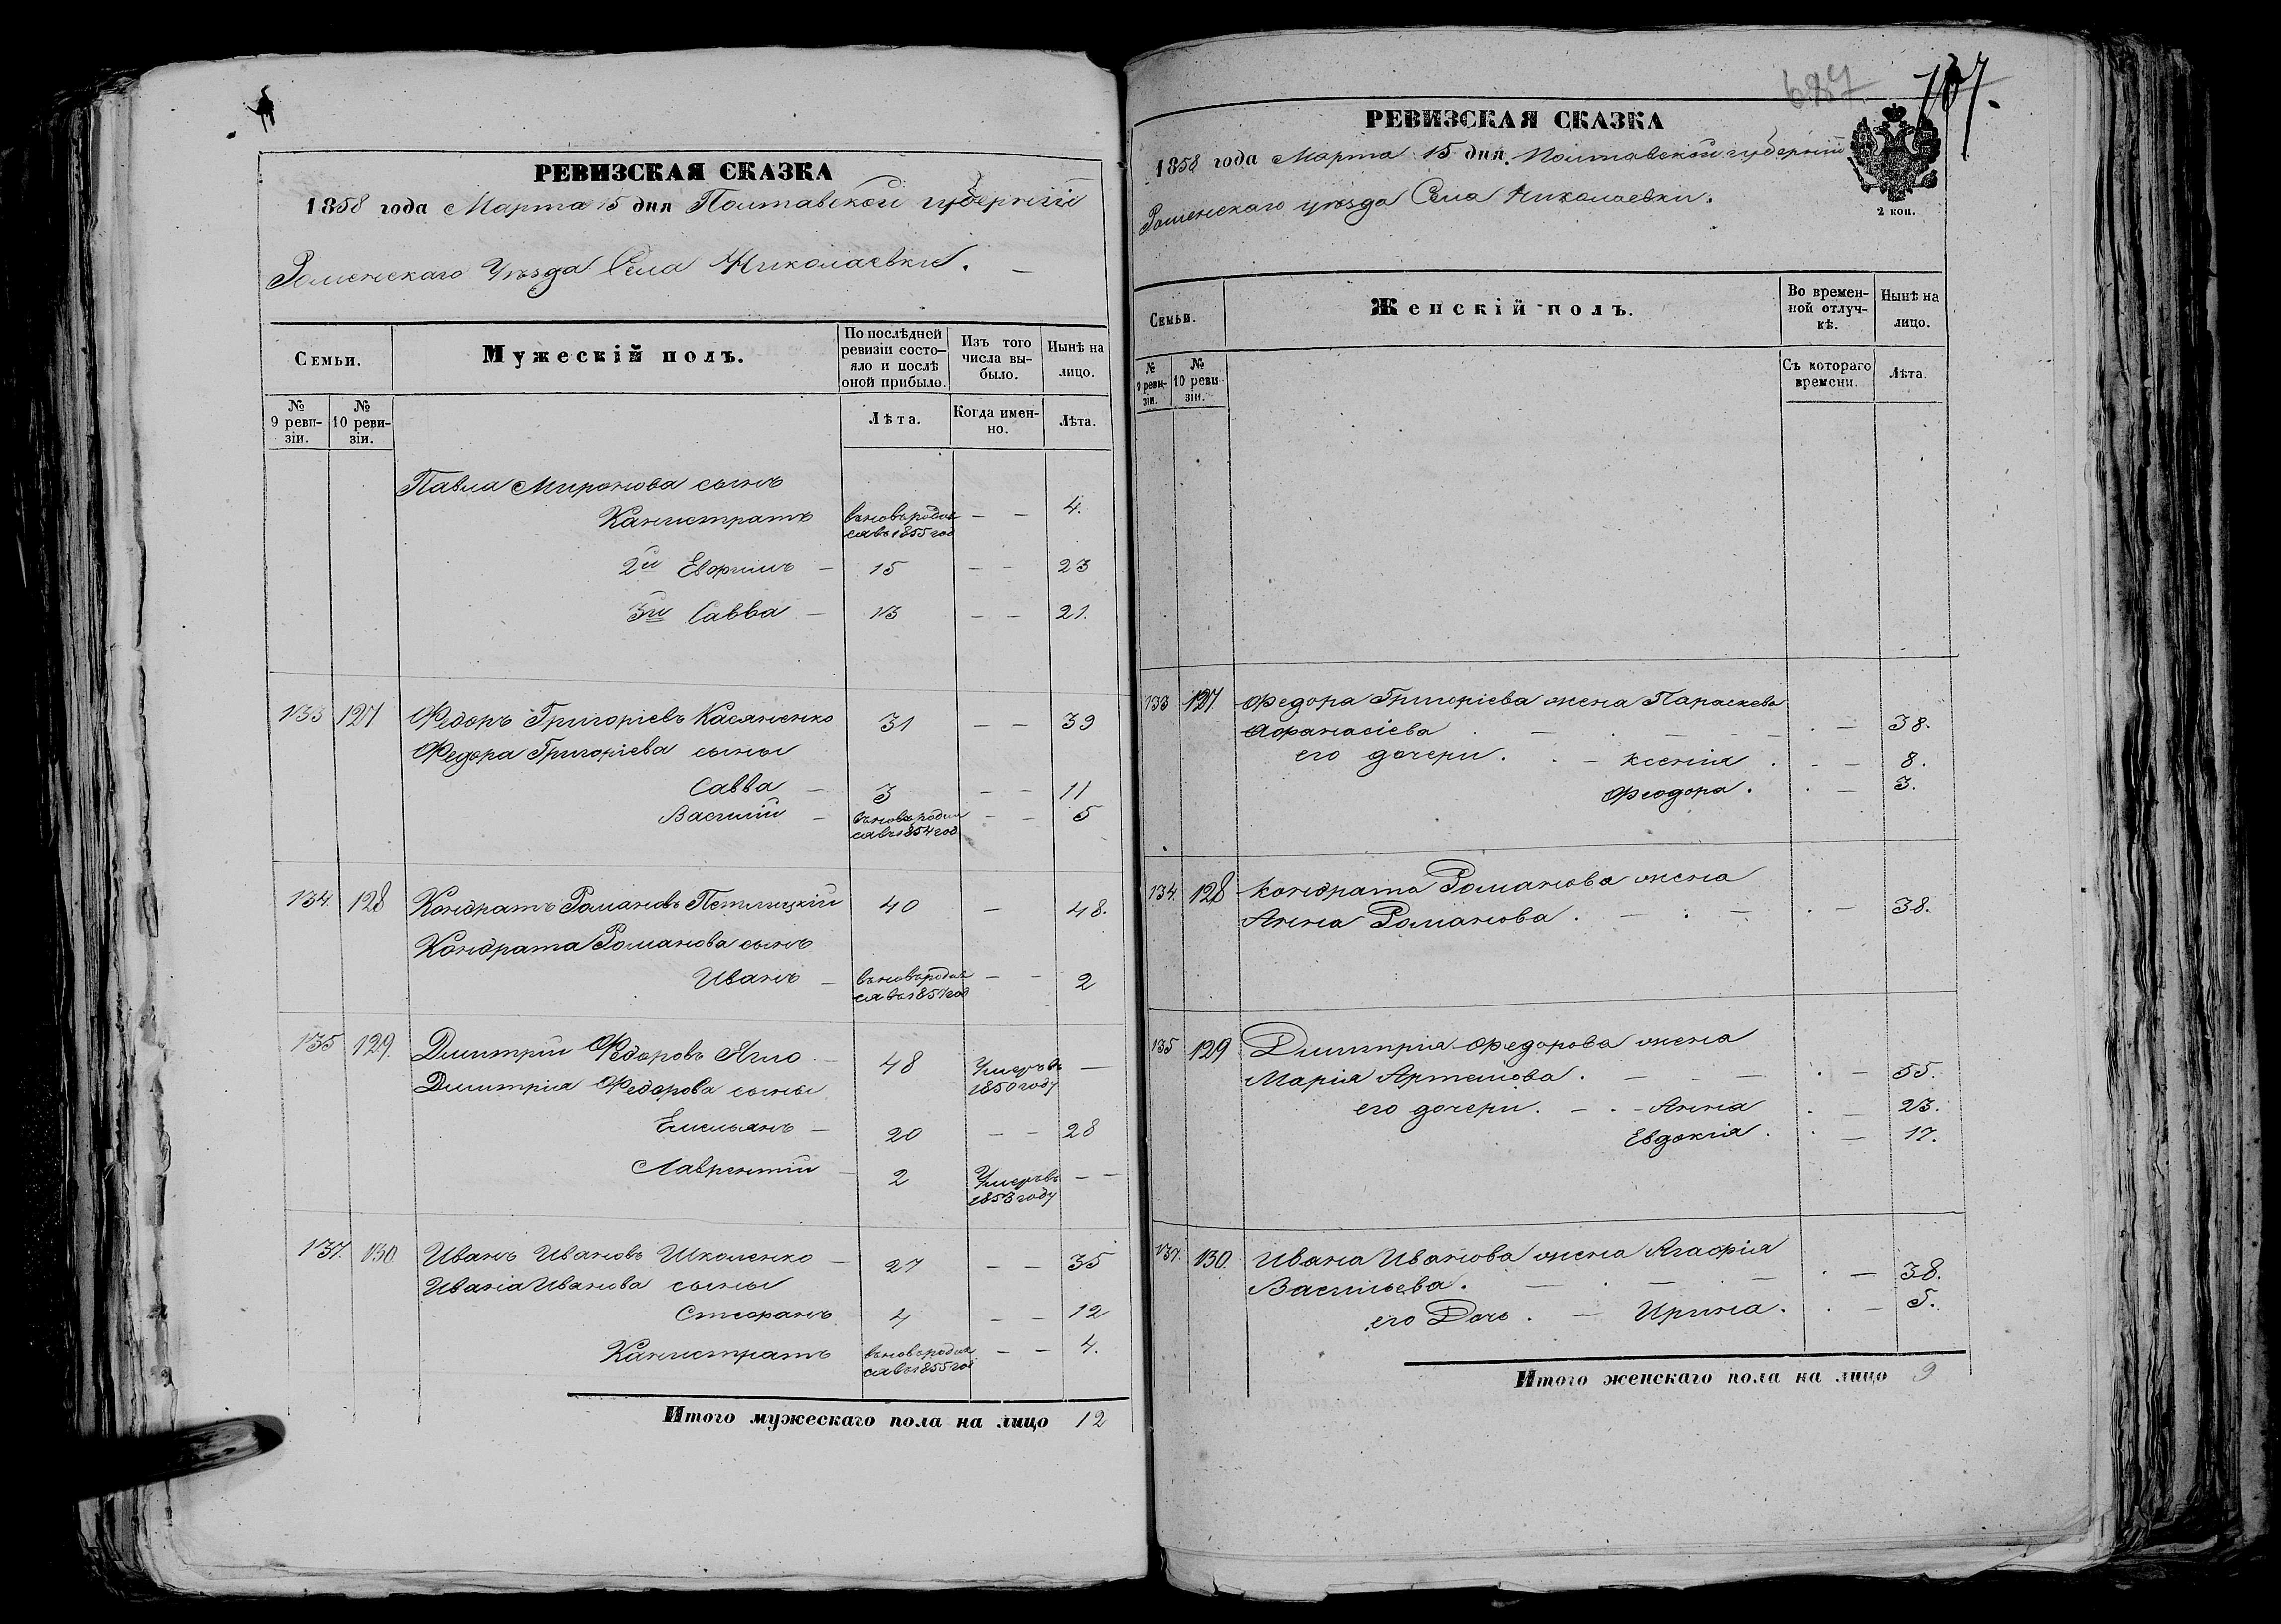 РЕВИЗСКАЯ СКАЗКА
1858 года Марта 15 дня Полтавской губерніи
Роменскаго Уѣзда Села Николаевки.
Семьи.
Мужескій полъ.
По послѣдней ревизіи состо-
яло и послѣ
оной прибыло.
Изъ того
числа вы-
было.
Нынѣ на
лицо.
№
9 реви-
зіи.
№
10 реви-
зіи.
Лѣта.
Когда имен-
но.
Лѣта.
Павла Миронова сынъ
Калистратъ вновь родил 4.
ся въ 1855 год
2й Евфимъ 15 23
3й Савва 13 21.
133 127 Федоръ Григоріевъ Касяненко 31 39
Федора Григоріева сыны
Савва 3 11
Василій вновь родил 5
ся въ 1854 год
134. 128 Кондратъ Романовъ 40 48.
Кондрата Романова сынъ
Иванъ вновь родил 2
ся въ 1857 год
135 129. Дмитрій Федоровъ Ягло 48 Умеръ въ
1850 году
Дмитрія Федорова сыны
Емельянъ 20 28
Лаврентій 2 Умеръ въ
1853 году
137. 130. Иванъ Ивановъ Школенко 27 35
Ивана Иванова сыны
Стефанъ 4 12
Калистратъ вновь родил 4.
ся въ 1855 год
Итого мужескаго пола на лицо 12
687
707.
РЕВИЗСКАЯ СКАЗКА
1858 года Марта 15 дня. Полтавской губерніи
Роменскаго уѣзда Села Николаевки.
2 коп.
Семьи.
Женскій полъ.
Во времен-
ной отлуч-
кѣ.
Нынѣ на
лицо.
№
9 реви-
зіи.
№
10 реви
зіи.
Съ котораго
времени.
Лѣта.
133 127. Федора Григоріева жена Параскева
Афанасіева 38.
его дочери. Ксенія 8.
Феодора. 3.
134. 128 Кондрата Романова жена
Анна Романова. 38.
135 129 Дмитрія Федорова жена
Марія Артемова. 55.
его дочери. Анна 23.
Евдокія. 17.
137. 130. Ивана Иванова жена Агафія
Васильева. 38.
его Дочь. Ирина. 5.
Итого женскаго пола на лицо 9